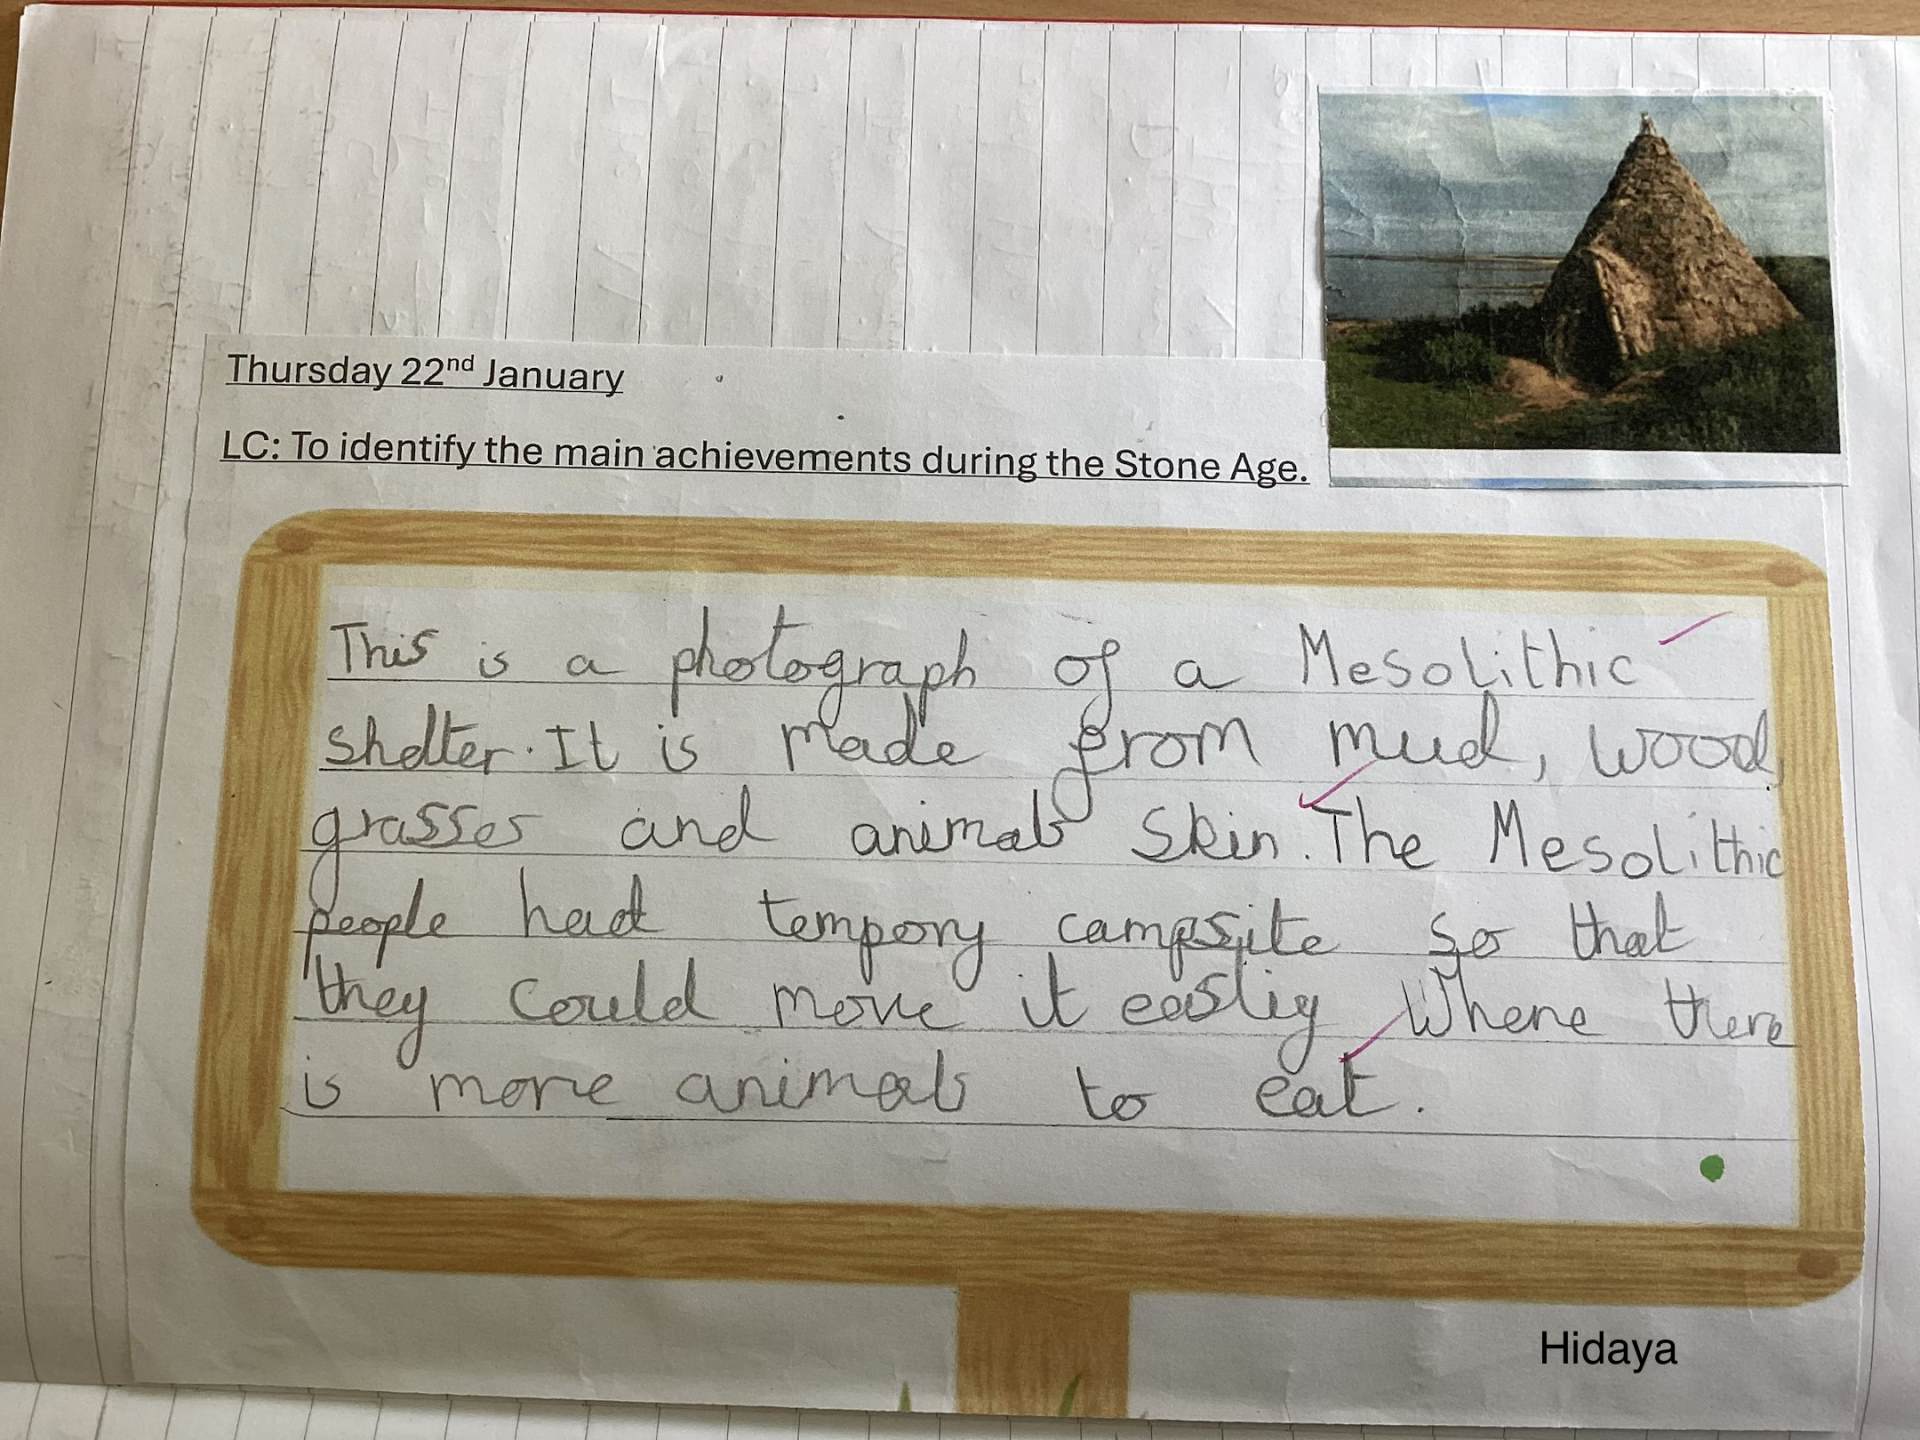 Thursday 22nd January
LC: To identify the main achievements during the Stone Age.
This is a photograph of a Mesolithic
shelter. It is made from mud, wood,
grasses and animals skin. The Mesolithic
people had tempory campsite so that
they could move it easliy Where there
is more animals to eat.
Hidaya